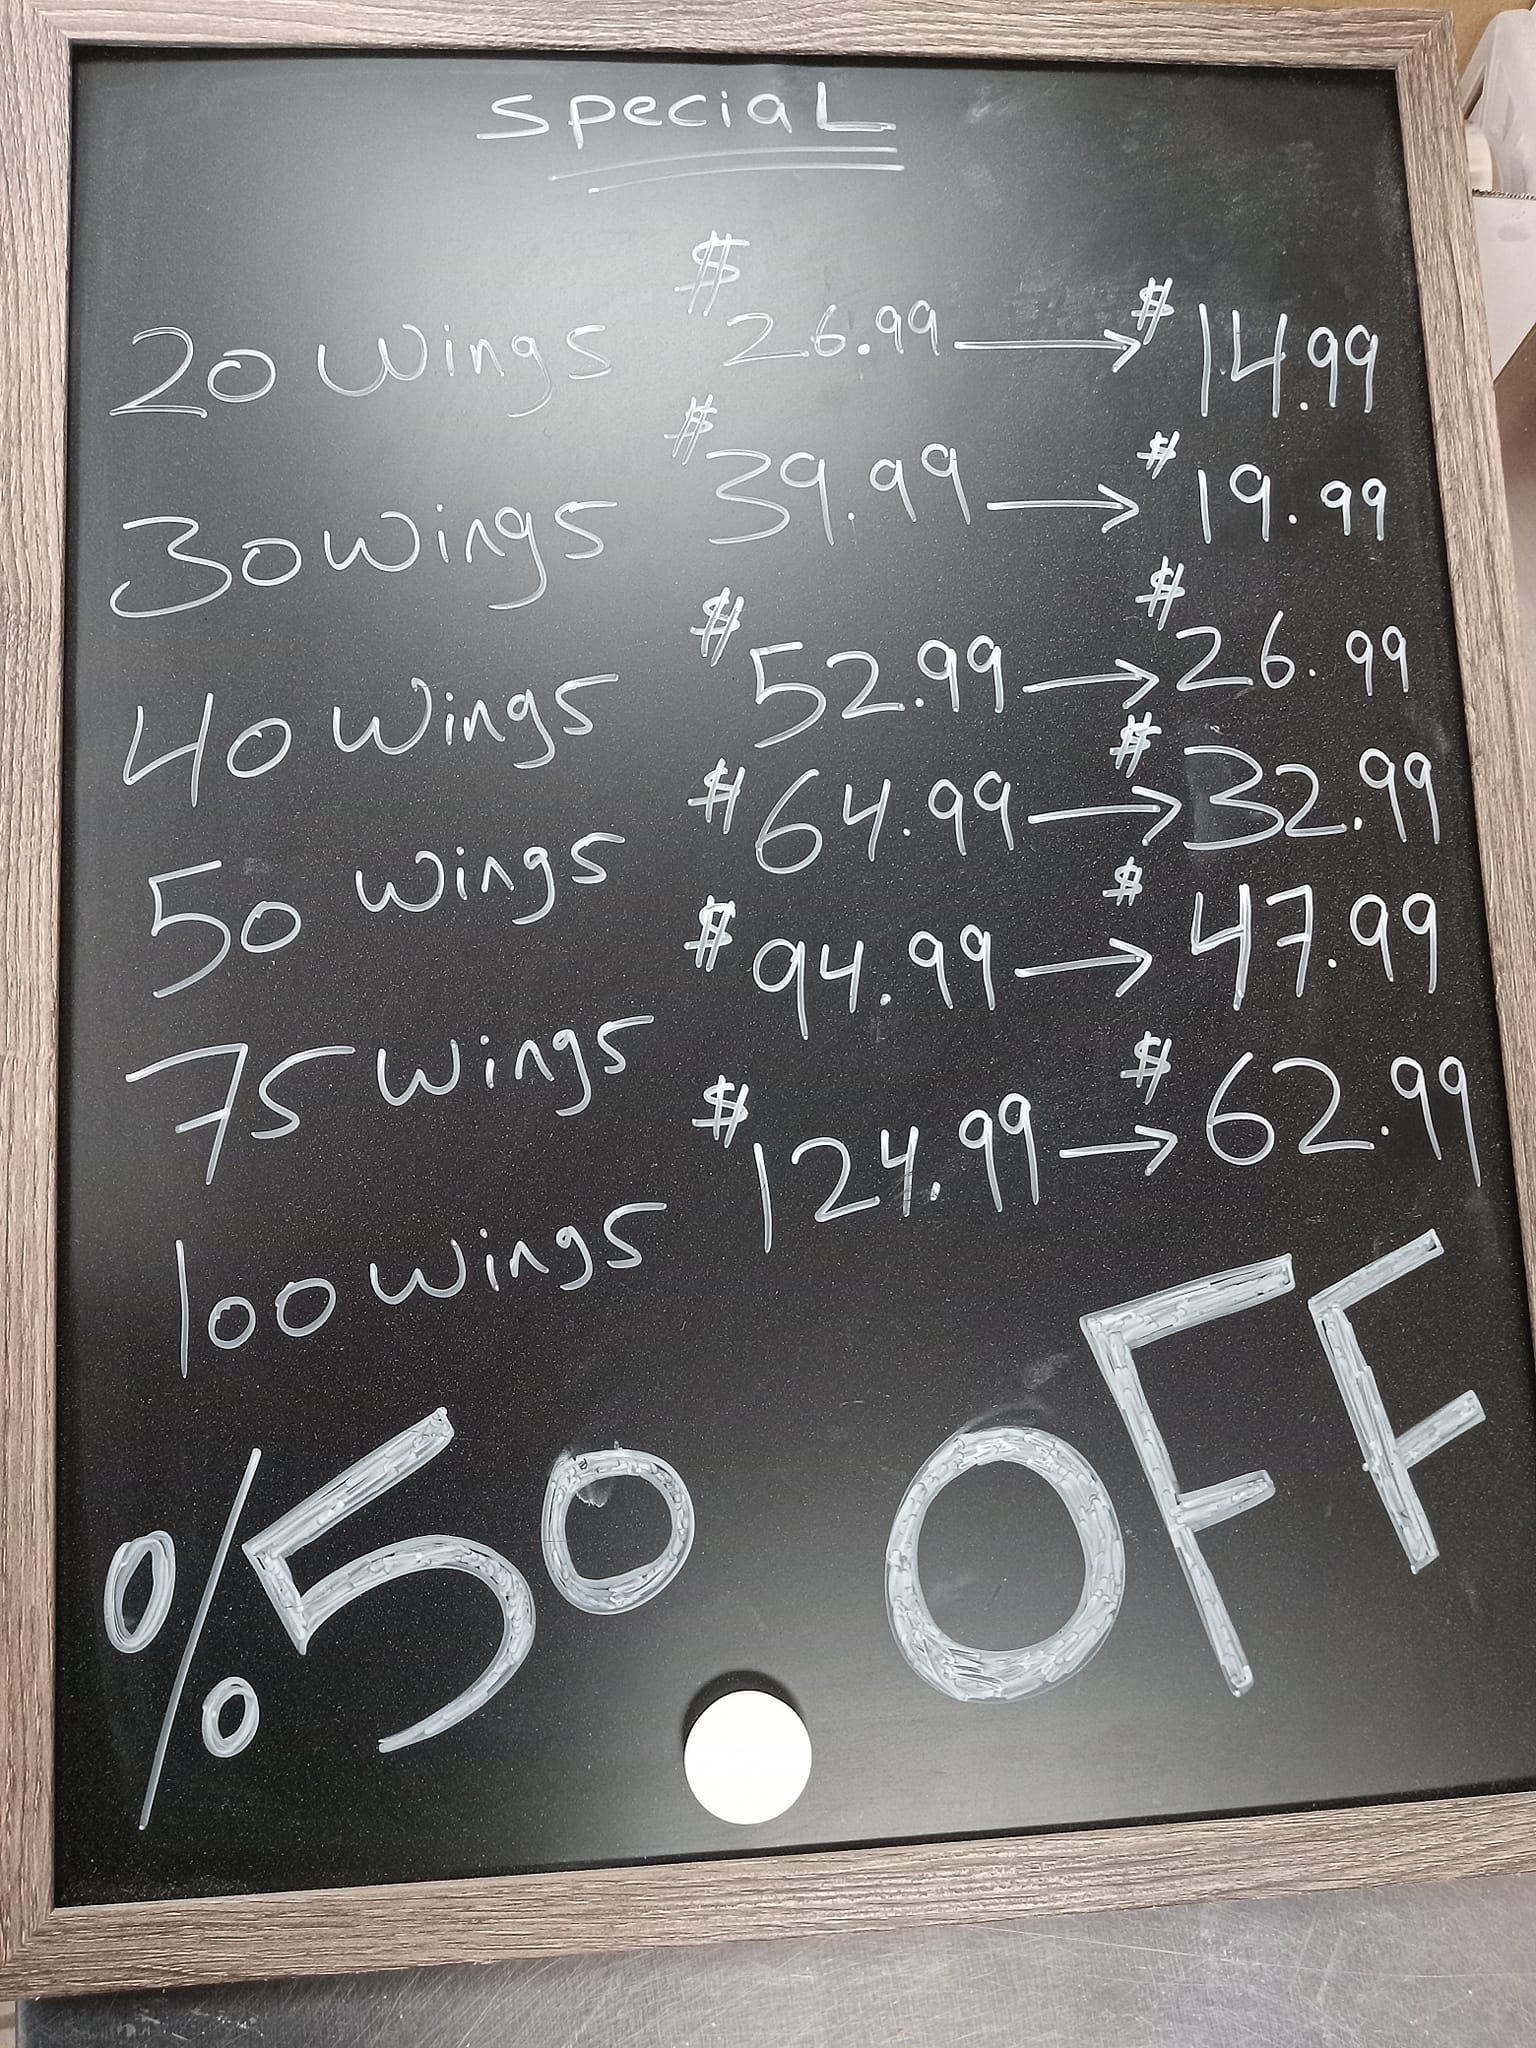 Special
20 wings $26.99 → $14.99
30 wings $39.99 → $19.99
40 wings $52.99 → $26.99
50 wings $64.99 → $32.99
75 wings $94.99 → $47.99
100 wings $124.99 → $62.99
%50 OFF